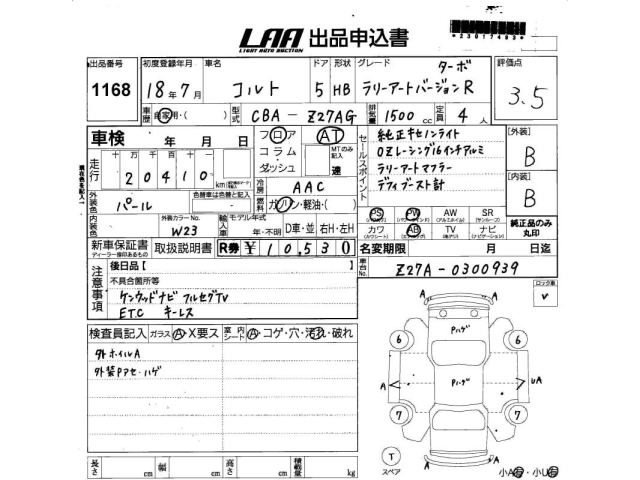 LAA 出品申込書
LIGHT AUTO AUCTION
出品番号 初度登録年月 車名 ドア 形状 グレード 評価点
1168 18年7月 コルト 5 HB ターボ ラリーアートバージョンR 3.5
車歴 自家用・( ) 型式 CBA - Z27AG 排気量 1500 cc 定員 4人
車検 年 月 日 フロア AT
コラム・ダッシュ MTのみ記入 速
走行 十万 万 千 百 十
20410 km
冷房 AAC
燃料 ガソリン・軽油・( )
外装色 パール 色替車は色替と記入
内装色 外装カラーNo. W23
輸入車 モデル年式 年・不明 D車・並 右H・左H
セールスポイント
純正キセノンライト
OZレーシング16インチアルミ
ラリーアートマフラー
デフィブースト計
[外装] B
[内装] B
PS PW AW SR
カワ AB TV ナビ
純正品のみ丸印
新車保証書 取扱説明書 R券 ¥10,530 名変期限 月 日迄
ディーラー捺印あるもの
注意事項 後日品[ ] 車台No. Z27A-0300939
不具合箇所等
ケンウッドナビ フルセグTV
ETC キーレス
ロック車 v
検査員記入 ガラス A・X要ス 内張シート A・コゲ・穴・汚れ・破れ
外ホイルA
外装Pアセ・ハゲ
Pハゲ
Pハゲ
A
A
A
UA
6
6
7
7
T
スペア
長さ cm 幅 cm 高さ cm 積載量 kg
小A有・小U有
現在色を記入